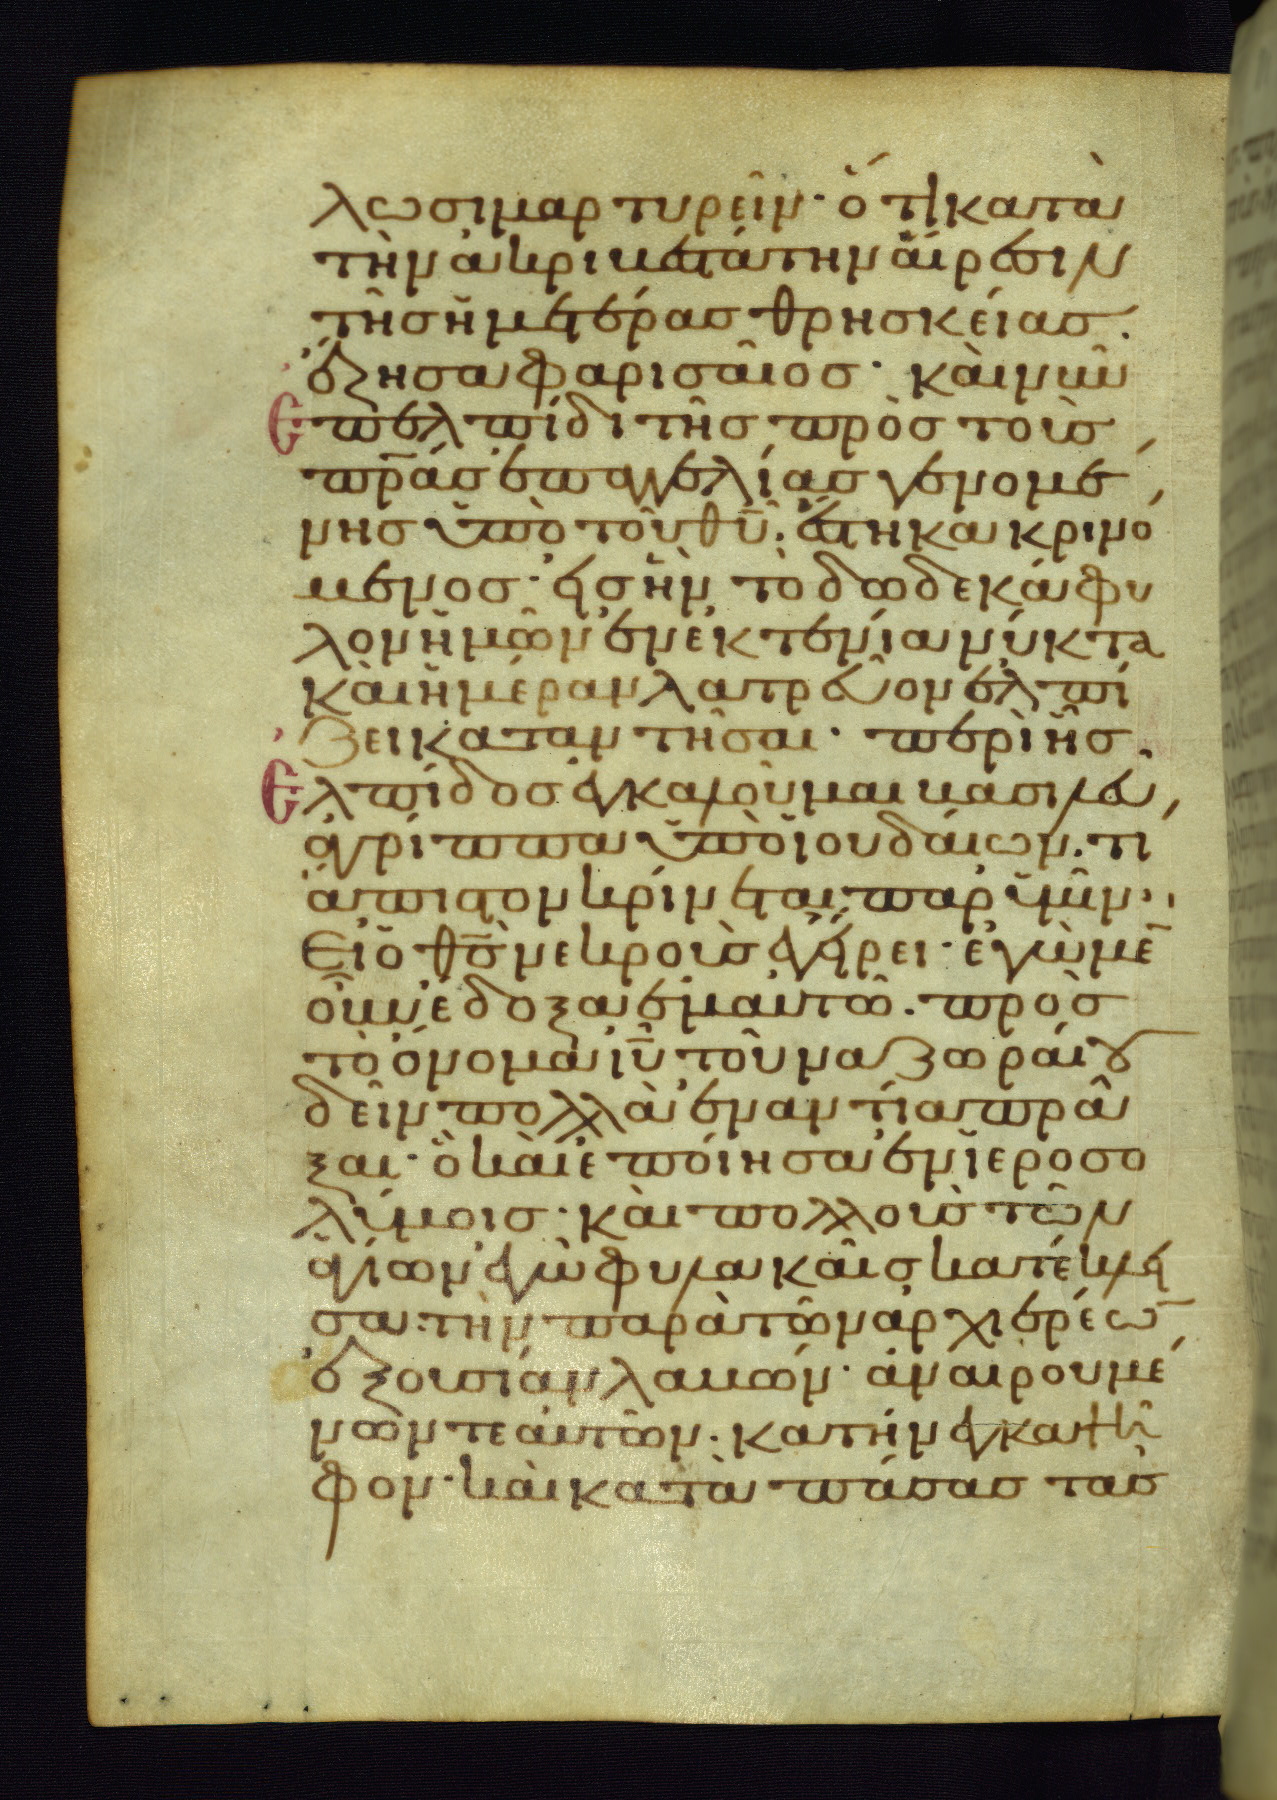 λωσι μαρτυρεῖν· ὅτι κατὰ
τὴν ἀκριβεστάτην αἵρεσιν
τῆς ἡμετέρας θρησκείας.
ἔζησα φαρισαῖος· καὶ νῦν
ἐπ ελπίδι τῆς πρὸς τοὺς
π̅ρ̅ας ἐπαγγελίας γενομέ
νης ὑπὸ τοῦ θ̅υ̅· ἕστηκα κρινό
μενος· εἰς ἣν τὸ δωδεκάφυ
λον ἡμῶν ἐν ἐκτενία νύκτα
καὶ ἡμέραν λατρεῦον ἐλπί
ζει καταντῆσαι· περὶ ἧς
ἐλπίδος ἐγκαλοῦμαι βασιλεῦ
ἀγρίππα ὑπὸ ἰουδαίων. τί
ἄπιστον κρίνεται παρ ὑμῖν·
Εἰ ὁ θ̅ς̅ νεκροὺς ἐγείρει· ἐγὼ μὲ̅
οὖν ἔδοξα ἐμαυτῶ. πρὸς
τὸ ὄνομα ι̅υ̅ τοῦ ναζωραίου
δεῖν πολλὰ ἐναντία πρᾶ
ξαι· ὃ καὶ ἐποίησα ἐν ἱεροσο
λύμοις· καὶ πολλοὺς τῶν
ἁγίων ἐγὼ φυλακαῖς κατέκλει
σα· τὴν παρὰ τῶν ἀρχιερέω̅
ἐξουσίαν λαβών· ἀναιρουμέ
νων τε αὐτῶν. κατήνεγκα ψῆ
φον· καὶ κατὰ πάσας τὰς